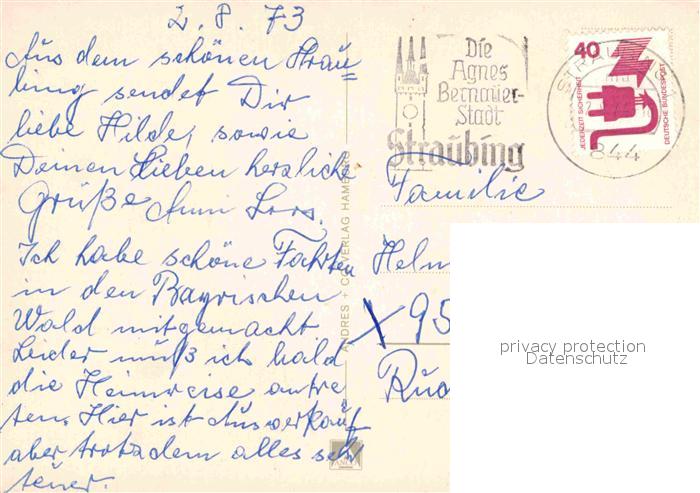 2. 8. 73
Aus dem schönen Strau=
bing sendet Dir
liebe Hilde, sowie
Deinen Lieben herzliche
Grüße Anni Lors.
Ich habe schöne Fahrten
in den Bayrischen
Wald mitgemacht
Leider muß ich bald
die Heimreise antre
ten. Hier ist Ausverkauf
aber trotzdem alles sehr
teuer.
ANDRES + CO VERLAG HAMBURG
Die
Agnes
Bernauer-
Stadt
Straubing
STRAUBING 1
844
40
JEDERZEIT SICHERHEIT
DEUTSCHE BUNDESPOST
Familie
Helm
X 95
Rud
privacy protection
Datenschutz